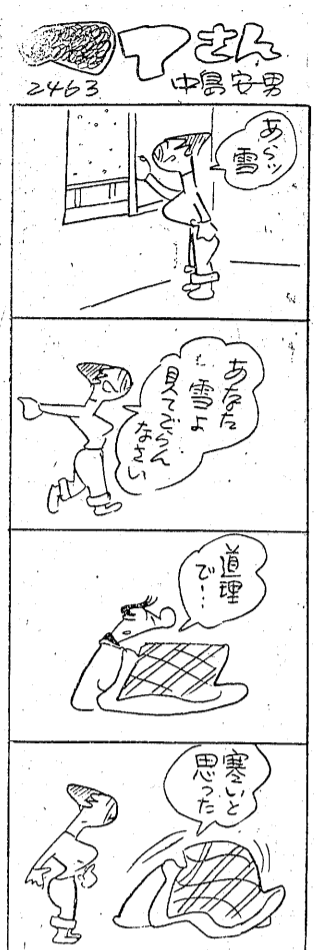 アさん
2463
中島安男
あらッ
雪
あなた
雪よ
見てごらん
なさい
道理
で…
寒いと
思った